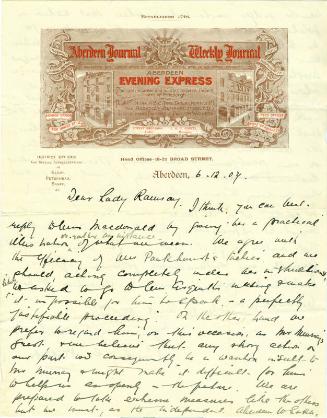 ESTABLISHED 1748.
Aberdeen Journal Weekly Journal
ABERDEEN
EVENING EXPRESS
DISTRICT OFFICES
ELGIN,
PETERHEAD,
BANFF,
Head Offices–18-22 BROAD STREET.
Aberdeen, 6.12.07.
Dear Lady Ramsay,
I think you can best
reply to Mrs Macdonald by giving her a practical
illustration of what we mean. We agree with
the efficacy of Mrs Pankhurst's tactics and we
should acting completely under her
if asked to go to Mr Asquith's meeting & make
it impossible for him to speak – a perfectly
justifiable proceeding. On the other hand we
prefer to regard him, on this occasion, as Mr Murray's
guest, & we believe that any strong action on
our part wd consequently be a wanton insult to
Mr Murray & might make it difficult for him
to help us so openly in the future. We are
prepared to take extreme measures like the others
but we must, as the independent Aberdeen W.